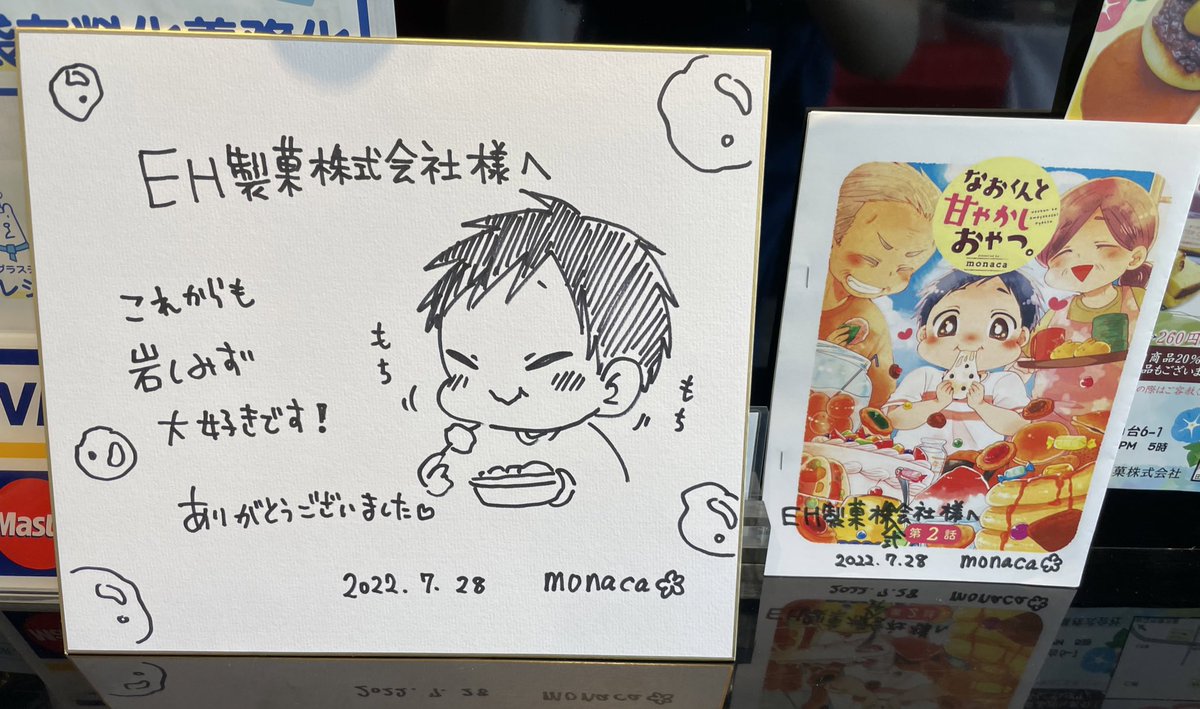 EH製菓株式会社様へ
これからも
岩しみず
大好きです!
ありがとうございました♡
もち
もち
2022.7.28 monaca
なおくんと
甘やかし
おやつ。
monaca
EH製菓株式会社様へ
第2話
2022.7.28 monaca
260円
商品20%
台6-1
PM 5時
菓株式会社